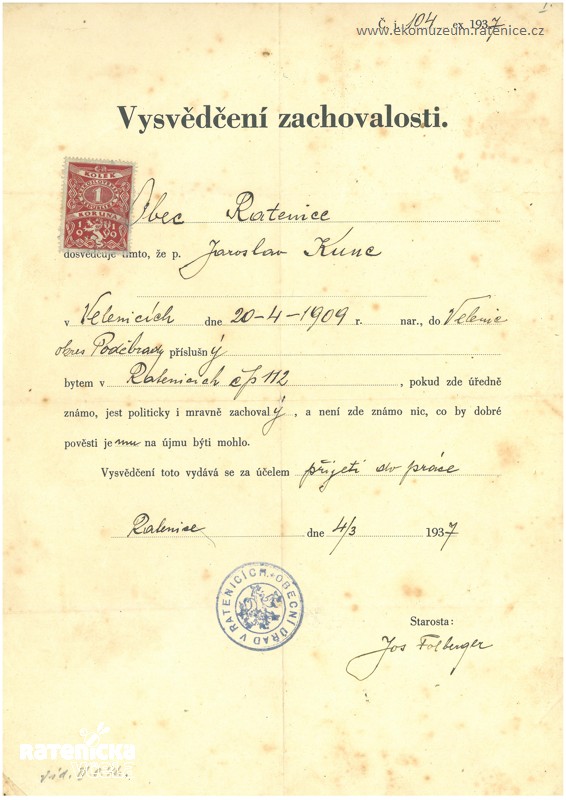 I.
Č. j. 104 ex 1937
www.ekomuzeum.ratenice.cz
Vysvědčení zachovalosti.
KOLEK
1
KORUNA
1919
Obec Ratenice
dosvědčuje tímto, že p. Jaroslav Kunc
v Velenicích dne 20-4-1909 r. nar., do Velenic
okres Poděbrady příslušný
bytem v Ratenicích čp 112, pokud zde úředně
známo, jest politicky i mravně zachovalý, a není zde známo nic, co by dobré
pověsti jemu na újmu býti mohlo.
Vysvědčení toto vydává se za účelem přijetí do práce
Ratenice dne 4/3 1937
OBECNÍ ÚŘAD V RATENICÍCH
Starosta:
Jos Folberger
RATENICKÁ